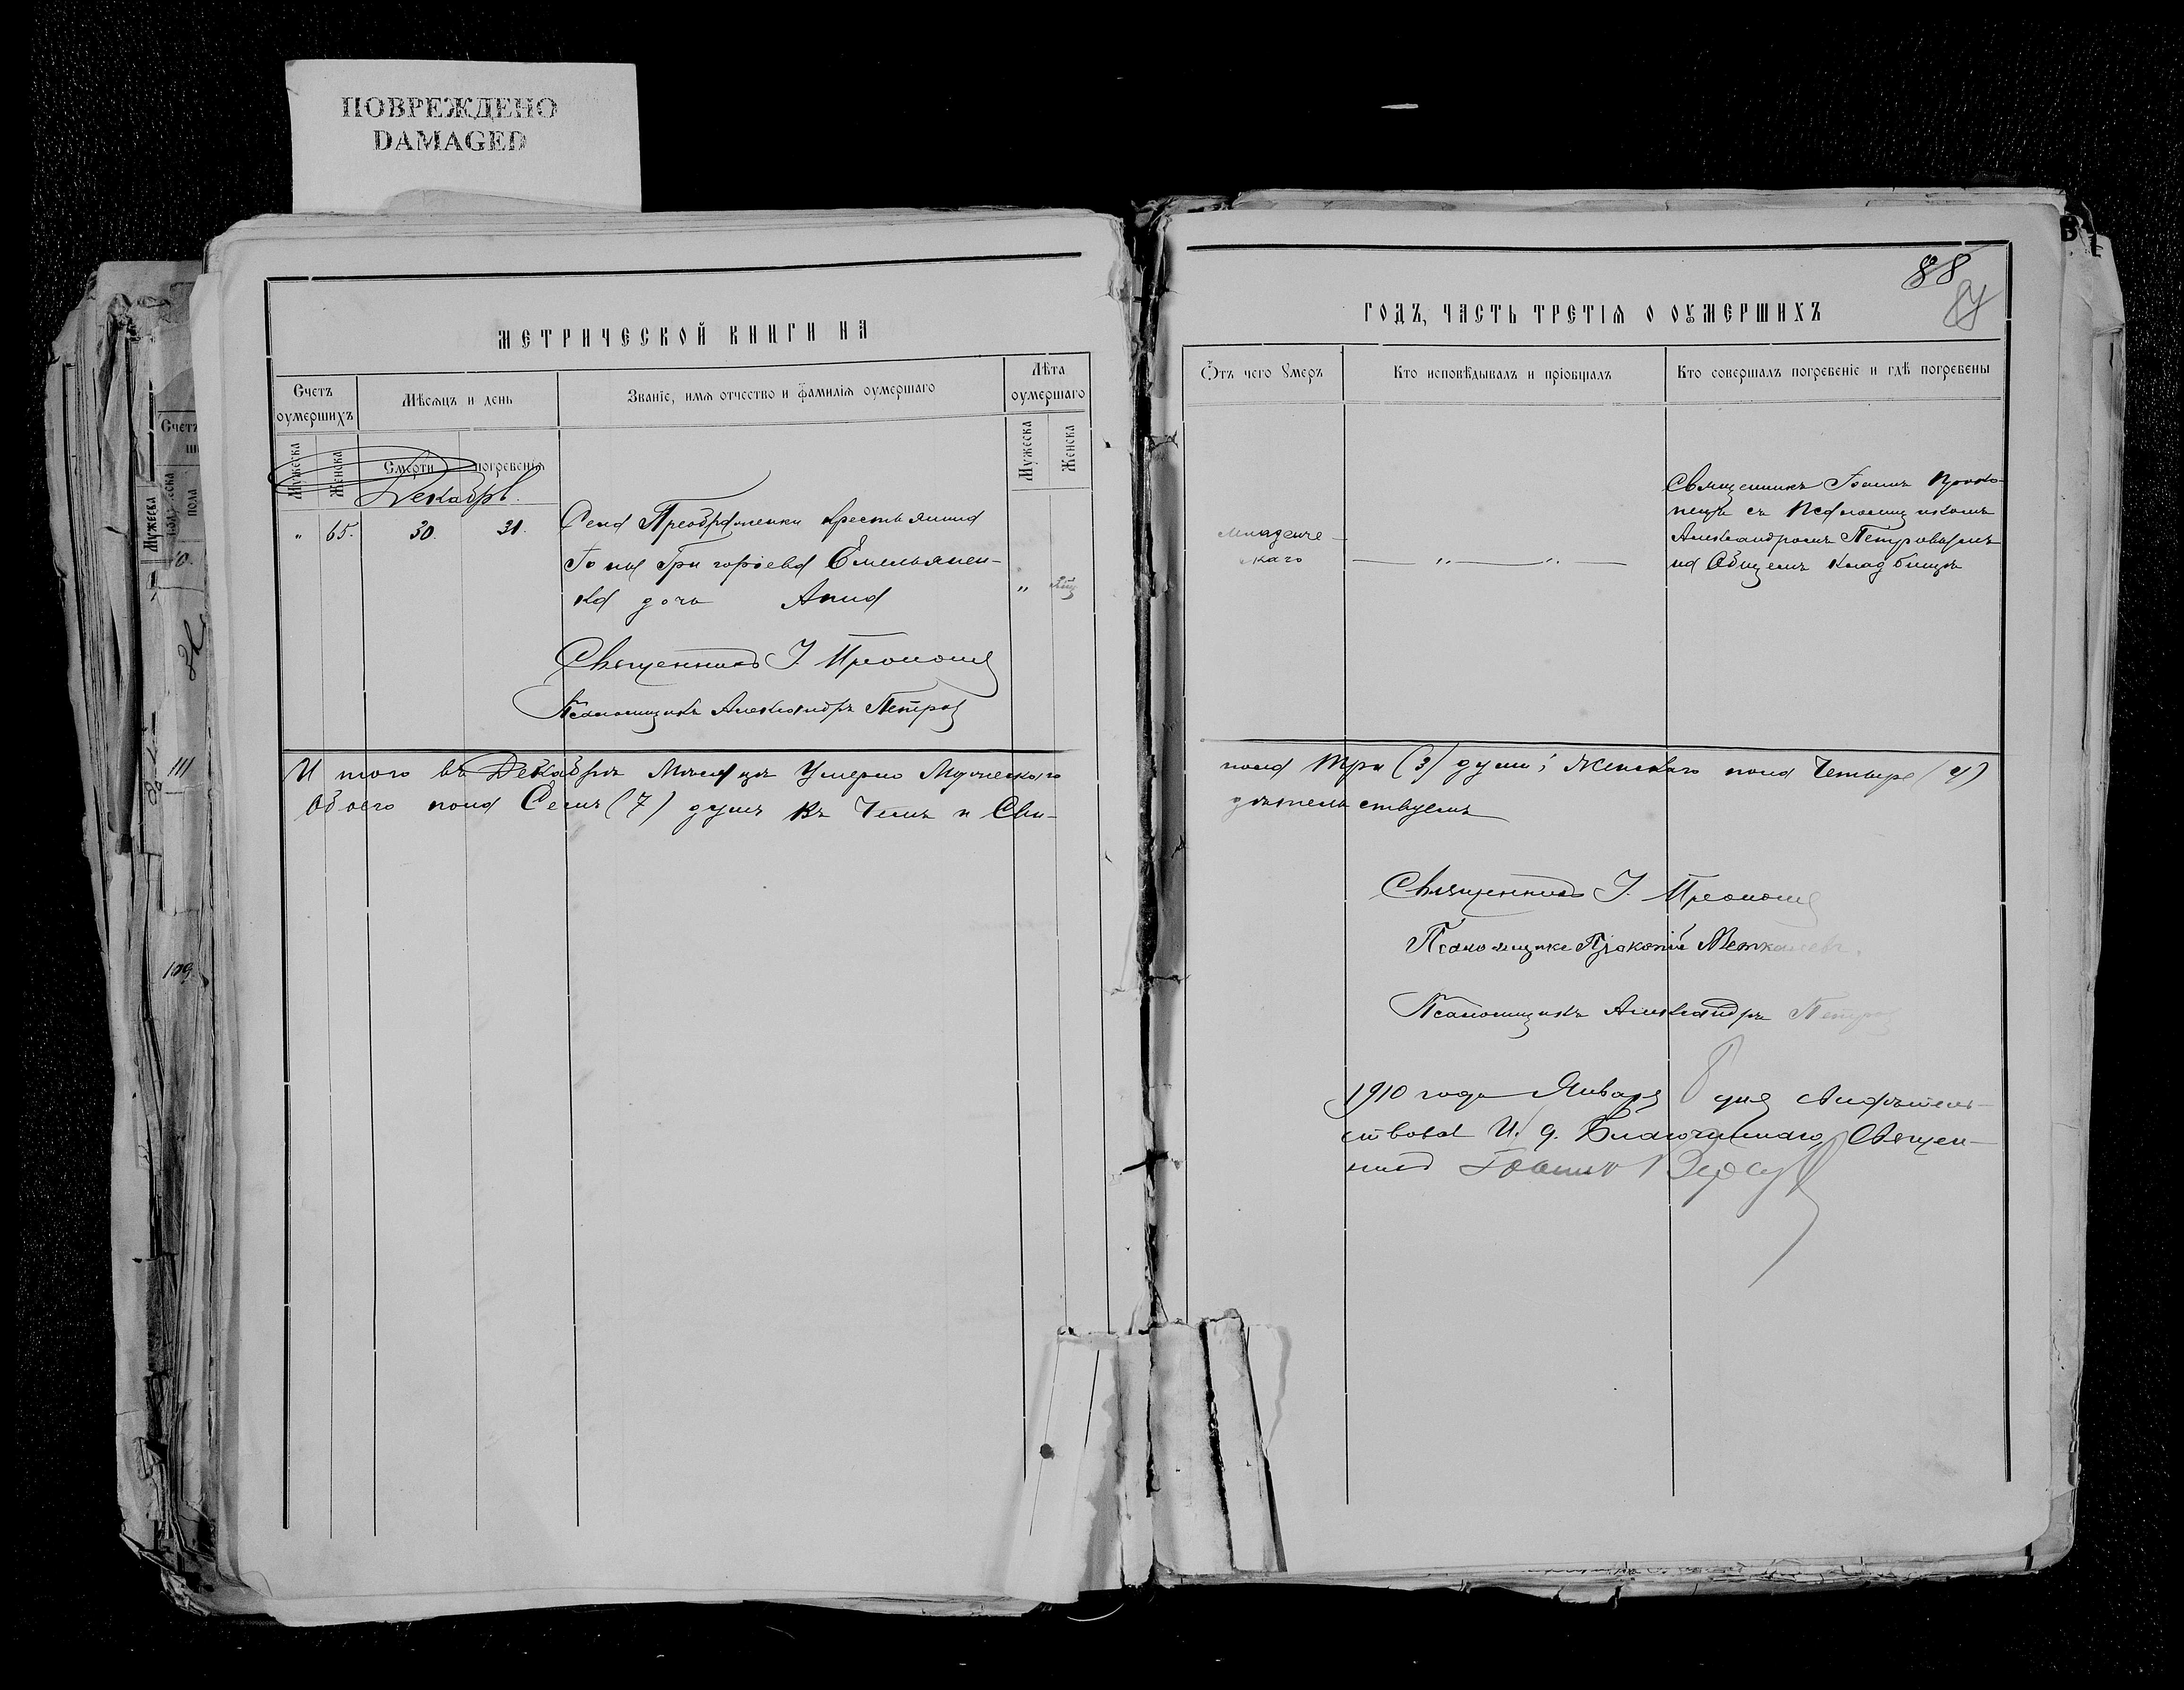 ПОВРЕЖДЕНО
DAMAGED
МЕТРИЧЕСКОЙ КНИГИ НА
Счетъ оумершихъ
Мѣсяцъ и день
Званіе, имя отчество и фамилія оумершаго
Лѣта оумершаго
Мужеска
Женска
Смерти
погребенія
Мужеска
Женска
Декабрь
" 65. 30. 31. Села Преображенки крестьянина
Іоны Григорьева Емельянен-
ка дочь Анна "
Священникъ І.
Псаломщикъ Александръ Петров
Итого въ Декабрѣ Мѣсяцѣ Умерло Мужескаго
Обоего пола Семь (7) душъ въ Чемъ и Сви-
88
87
ГОДЪ, ЧАСТЬ ТРЕТІЯ О ОУМЕРШИХЪ
Ѿтъ чего Умеръ
Кто исповѣдывалъ и пріобщалъ
Кто совершалъ погребеніе и гдѣ погребены
Младенче-
скаго
Священникъ Іоаннъ
съ Псаломщикомъ
Александромъ Петровымъ
на Общемъ кладбищѣ
пола три (3) души; Женскаго пола Четыре (4)
дѣтельствуемъ
Священникъ І.
Псаломщикъ Прокопій
Псаломщикъ Александръ Петров
1910 года Января 8 дня свидѣтель-
ствовал И. д. Благочиннаго, Священ-
никъ Іоаннъ
Счетъ
Мужеска
пола
10.
111
109